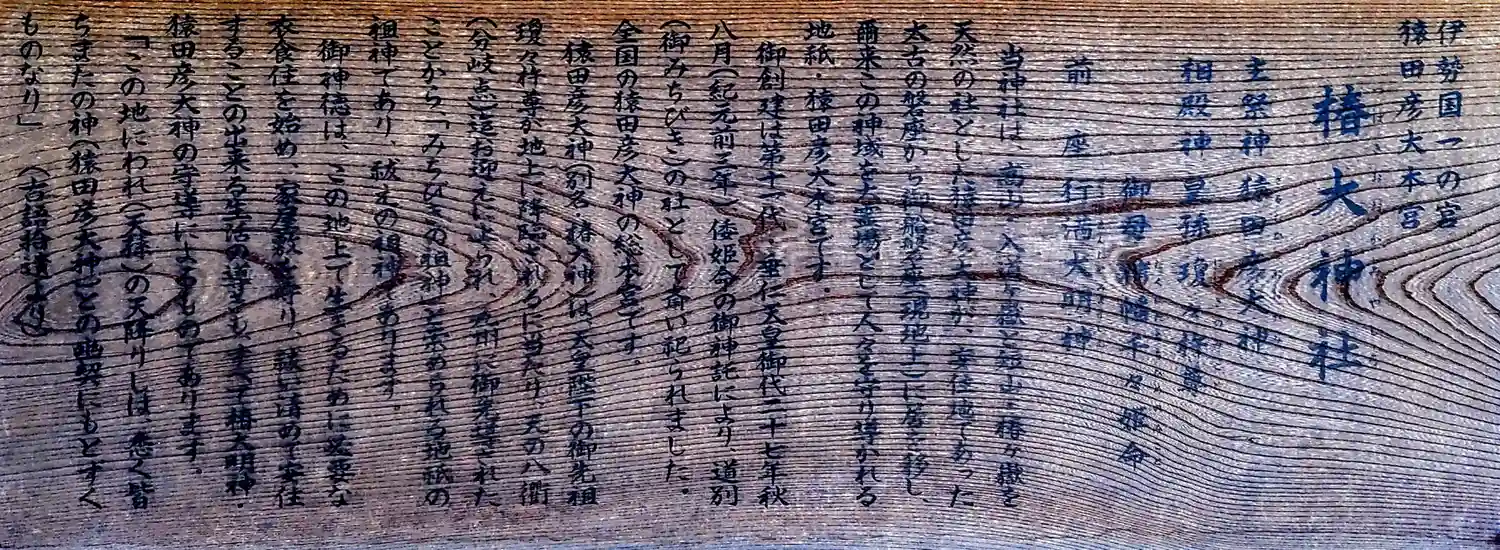 伊勢国一の宮
猿田彦大本宮
椿大神社
つばきおおかみやしろ
主祭神 猿田彦大神
相殿神 皇孫瓊々杵尊
御母 千々姫命
前座 行満大明神
当神社は、高山 入道ヶ嶽と短山 椿ヶ嶽を
天然の社とした猿田彦大神が、安住地であった
太古の磐座から御船磐座(現地上)に居を移し、
爾来この神域をよき霊場として人々を守り導かれる
地祇・猿田彦大本宮です。
御創建は第十一代・垂仁天皇御代二十七年秋
八月(紀元前三年)倭姫命の御神託により、道別
(御みちびき)の社として斎い祀られました。
全国の猿田彦大神の総本宮です。
猿田彦大神(別名・椿大神)は、天皇陛下の御先祖
瓊々杵尊が地上に降臨されるに当たり、天の八衢
(分岐点)迄お迎えに上られ、先頭に御先導された
ことから「みちびきの祖神」と崇められる地祇の
祖神であり、祓えの祖神であります。
御神徳は、この地上で生きるために必要な
衣食住を始め、家屋敷を守り、祓い清めて安住
することの出来る生活の導きも、すべて椿大明神・
猿田彦大神の守導によるものであります。
「この地にわれ(天孫)の天降りしは 悉く皆
ちまたの神(猿田彦大神)との幽契にもとずく
ものなり」 (古語拾遺より)